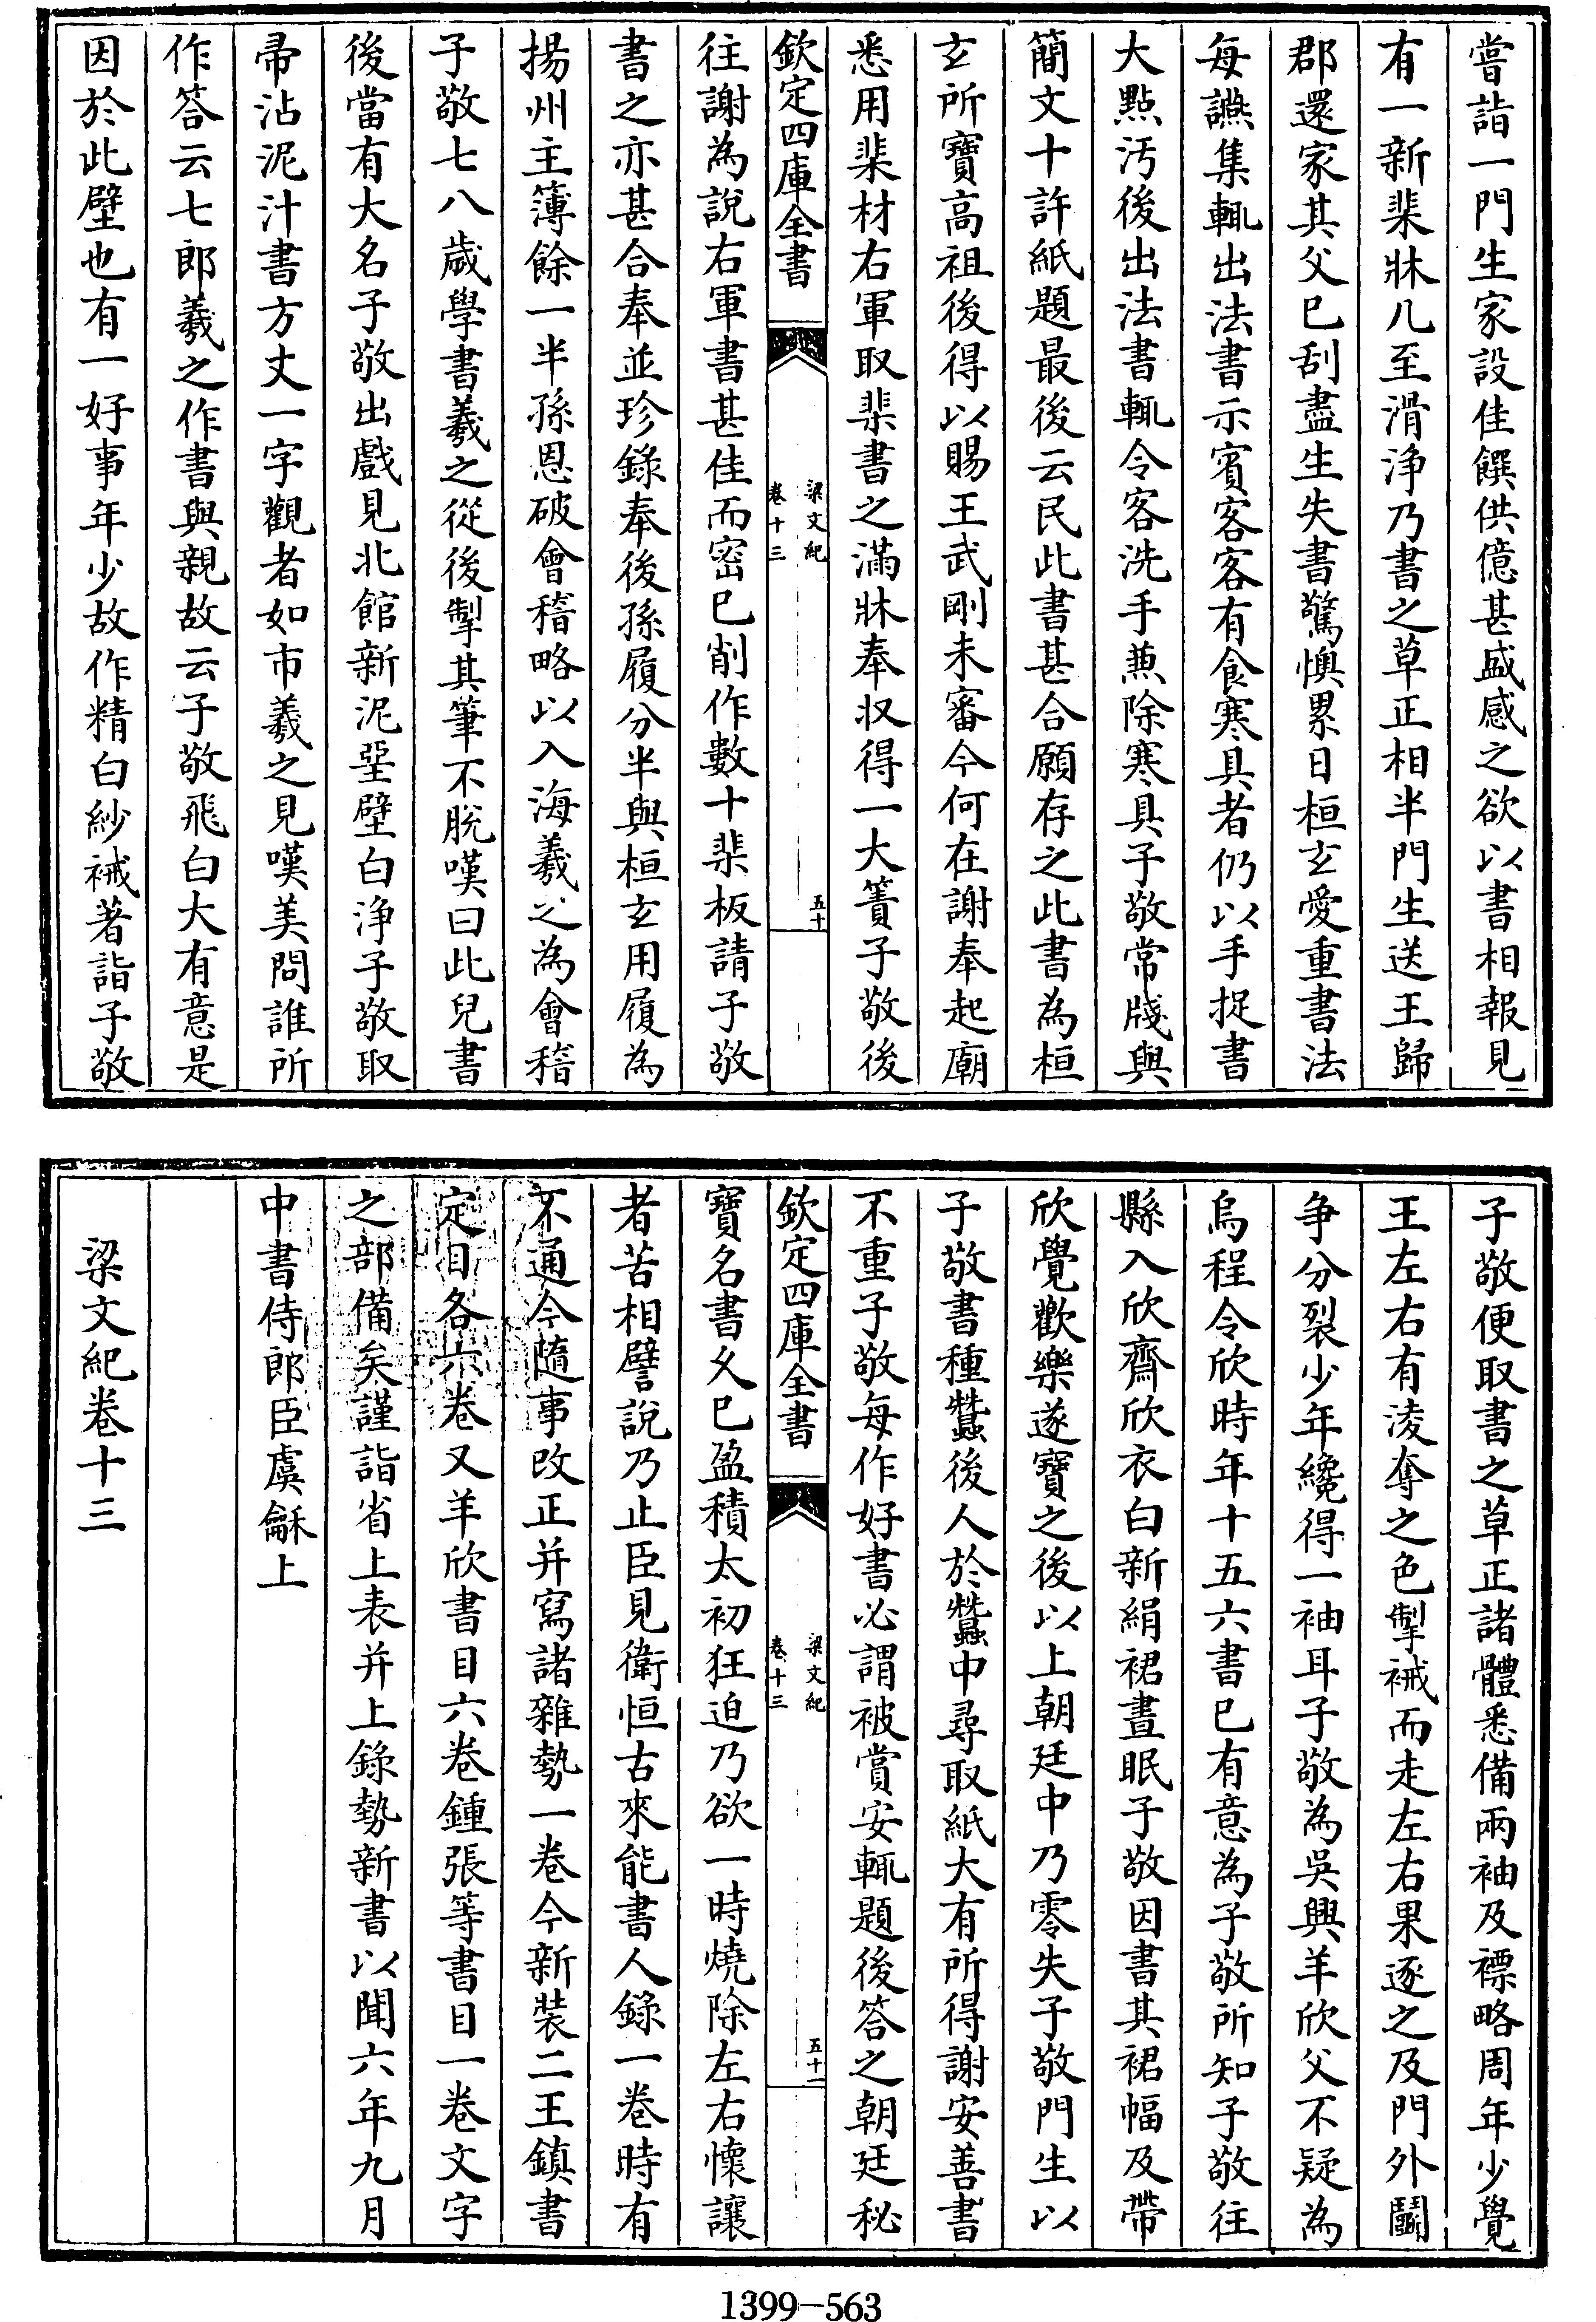 嘗詣一門生家設佳饌供億甚盛感之欲以書相報見
有一新棐牀几至滑浄乃書之草正相半門生送王歸
郡還家其父已刮盡生失書驚懊累日桓玄愛重書法
每讌集輒出法書示賓客客有食寒具者仍以手捉書
大點汚後出法書輒令客洗手兼除寒具子敬常牋與
簡文十許紙題最後云民此書甚合願存之此書為桓
玄所寶高祖後得以賜王武剛未審今何在謝奉起廟
悉用棐材右軍取棐書之滿牀奉収得一大簣子敬後
欽定四庫全書
梁文紀
卷十三
五十
往謝為說右軍書甚佳而密已削作數十棐板請子敬
書之亦甚合奉並珍錄奉後孫履分半與桓玄用履為
揚州主簿餘一半孫恩破會稽略以入海羲之為會稽
子敬七八歲學書羲之從後掣其筆不脫嘆曰此兒書
後當有大名子敬出戲見北館新泥堊壁白浄子敬取
帚沾泥汁書方丈一字觀者如市羲之見嘆美問誰所
作答云七郎羲之作書與親故云子敬飛白大有意是
因於此壁也有一好事年少故作精白紗裓著詣子敬
子敬便取書之草正諸體悉備兩袖及褾略周年少覺
王左右有淩奪之色掣裓而走左右果逐之及門外鬬
争分裂少年纔得一袖耳子敬為吳興羊欣父不疑為
烏程令欣時年十五六書已有意為子敬所知子敬往
縣入欣齋欣衣白新絹裙晝眠子敬因書其裙幅及帶
欣覺歡樂遂寶之後以上朝廷中乃零失子敬門生以
子敬書種蠶後人於蠶中尋取紙大有所得謝安善書
不重子敬每作好書必謂被賞安輒題後答之朝廷秘
欽定四庫全書
梁文紀
卷十三
五十一
寶名書久已盈積太初狂迫乃欲一時燒除左右懷讓
者苦相譬說乃止臣見衛恒古來能書人錄一卷時有
不通今隨事改正并寫諸雜勢一卷今新裝二王鎮書
定目各六卷又羊欣書目六卷鍾張等書目一卷文字
之部備矣謹詣省上表并上錄勢新書以聞六年九月
中書侍郎臣虞龢上
梁文紀卷十三
1399-563